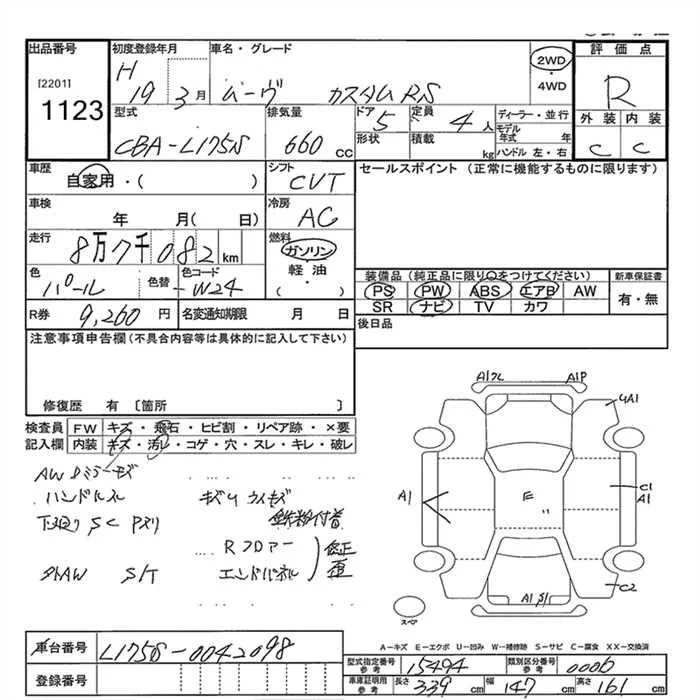 出品番号
[2201]
1123
初度登録年月
H
19 3月
車名・グレード
ムーヴ カスタム RS
2WD
・
4WD
評価点
R
外装 内装
C C
型式
CBA-L175S
排気量
660 CC
ドア
5
定員
4人
形状
積載
kg
ディーラー・並行
モデル年式 年
ハンドル 左・右
車歴
自家用・( )
シフト
CVT
セールスポイント (正常に機能するものに限ります)
車検
年 月( 日)
冷房
AC
走行
8万7千082km
燃料
ガソリン
軽油
・( )
色
パール
色替
色コード
W24
装備品(純正品に限り○をつけてください)
PS PW ABS エアB AW
SR ナビ TV カワ
新車保証書
有・無
R券 9,260円
名変通知期限 月 日
後日品
注意事項申告欄(不具合内容等は具体的に記入して下さい)
修復歴 有 〔箇所 〕
検査員記入欄
FW キズ・飛石・ヒビ割・リペア跡・×要
内装 キズ・汚レ・コゲ・穴・スレ・キレ・破レ
AW ドミラーキズ
ハンドルスレ
下廻り SC Pズリ
外AW S/T
キズU カイキズ
鉄粉付着
Rフロアー
エンドパネル
修正
歪
A1P
4A1
A1
E
C1
A1
C2
A1 S/T
スペア
A-キズ E-エクボ U-凹み W-補修跡 S-サビ C-腐食 XX-交換済
車台番号 L175S-0042098
登録番号
型式指定番号参考 15494
類別区分番号参考 0006
車庫証明用参考 長さ 339cm 幅 147cm 高さ 161cm